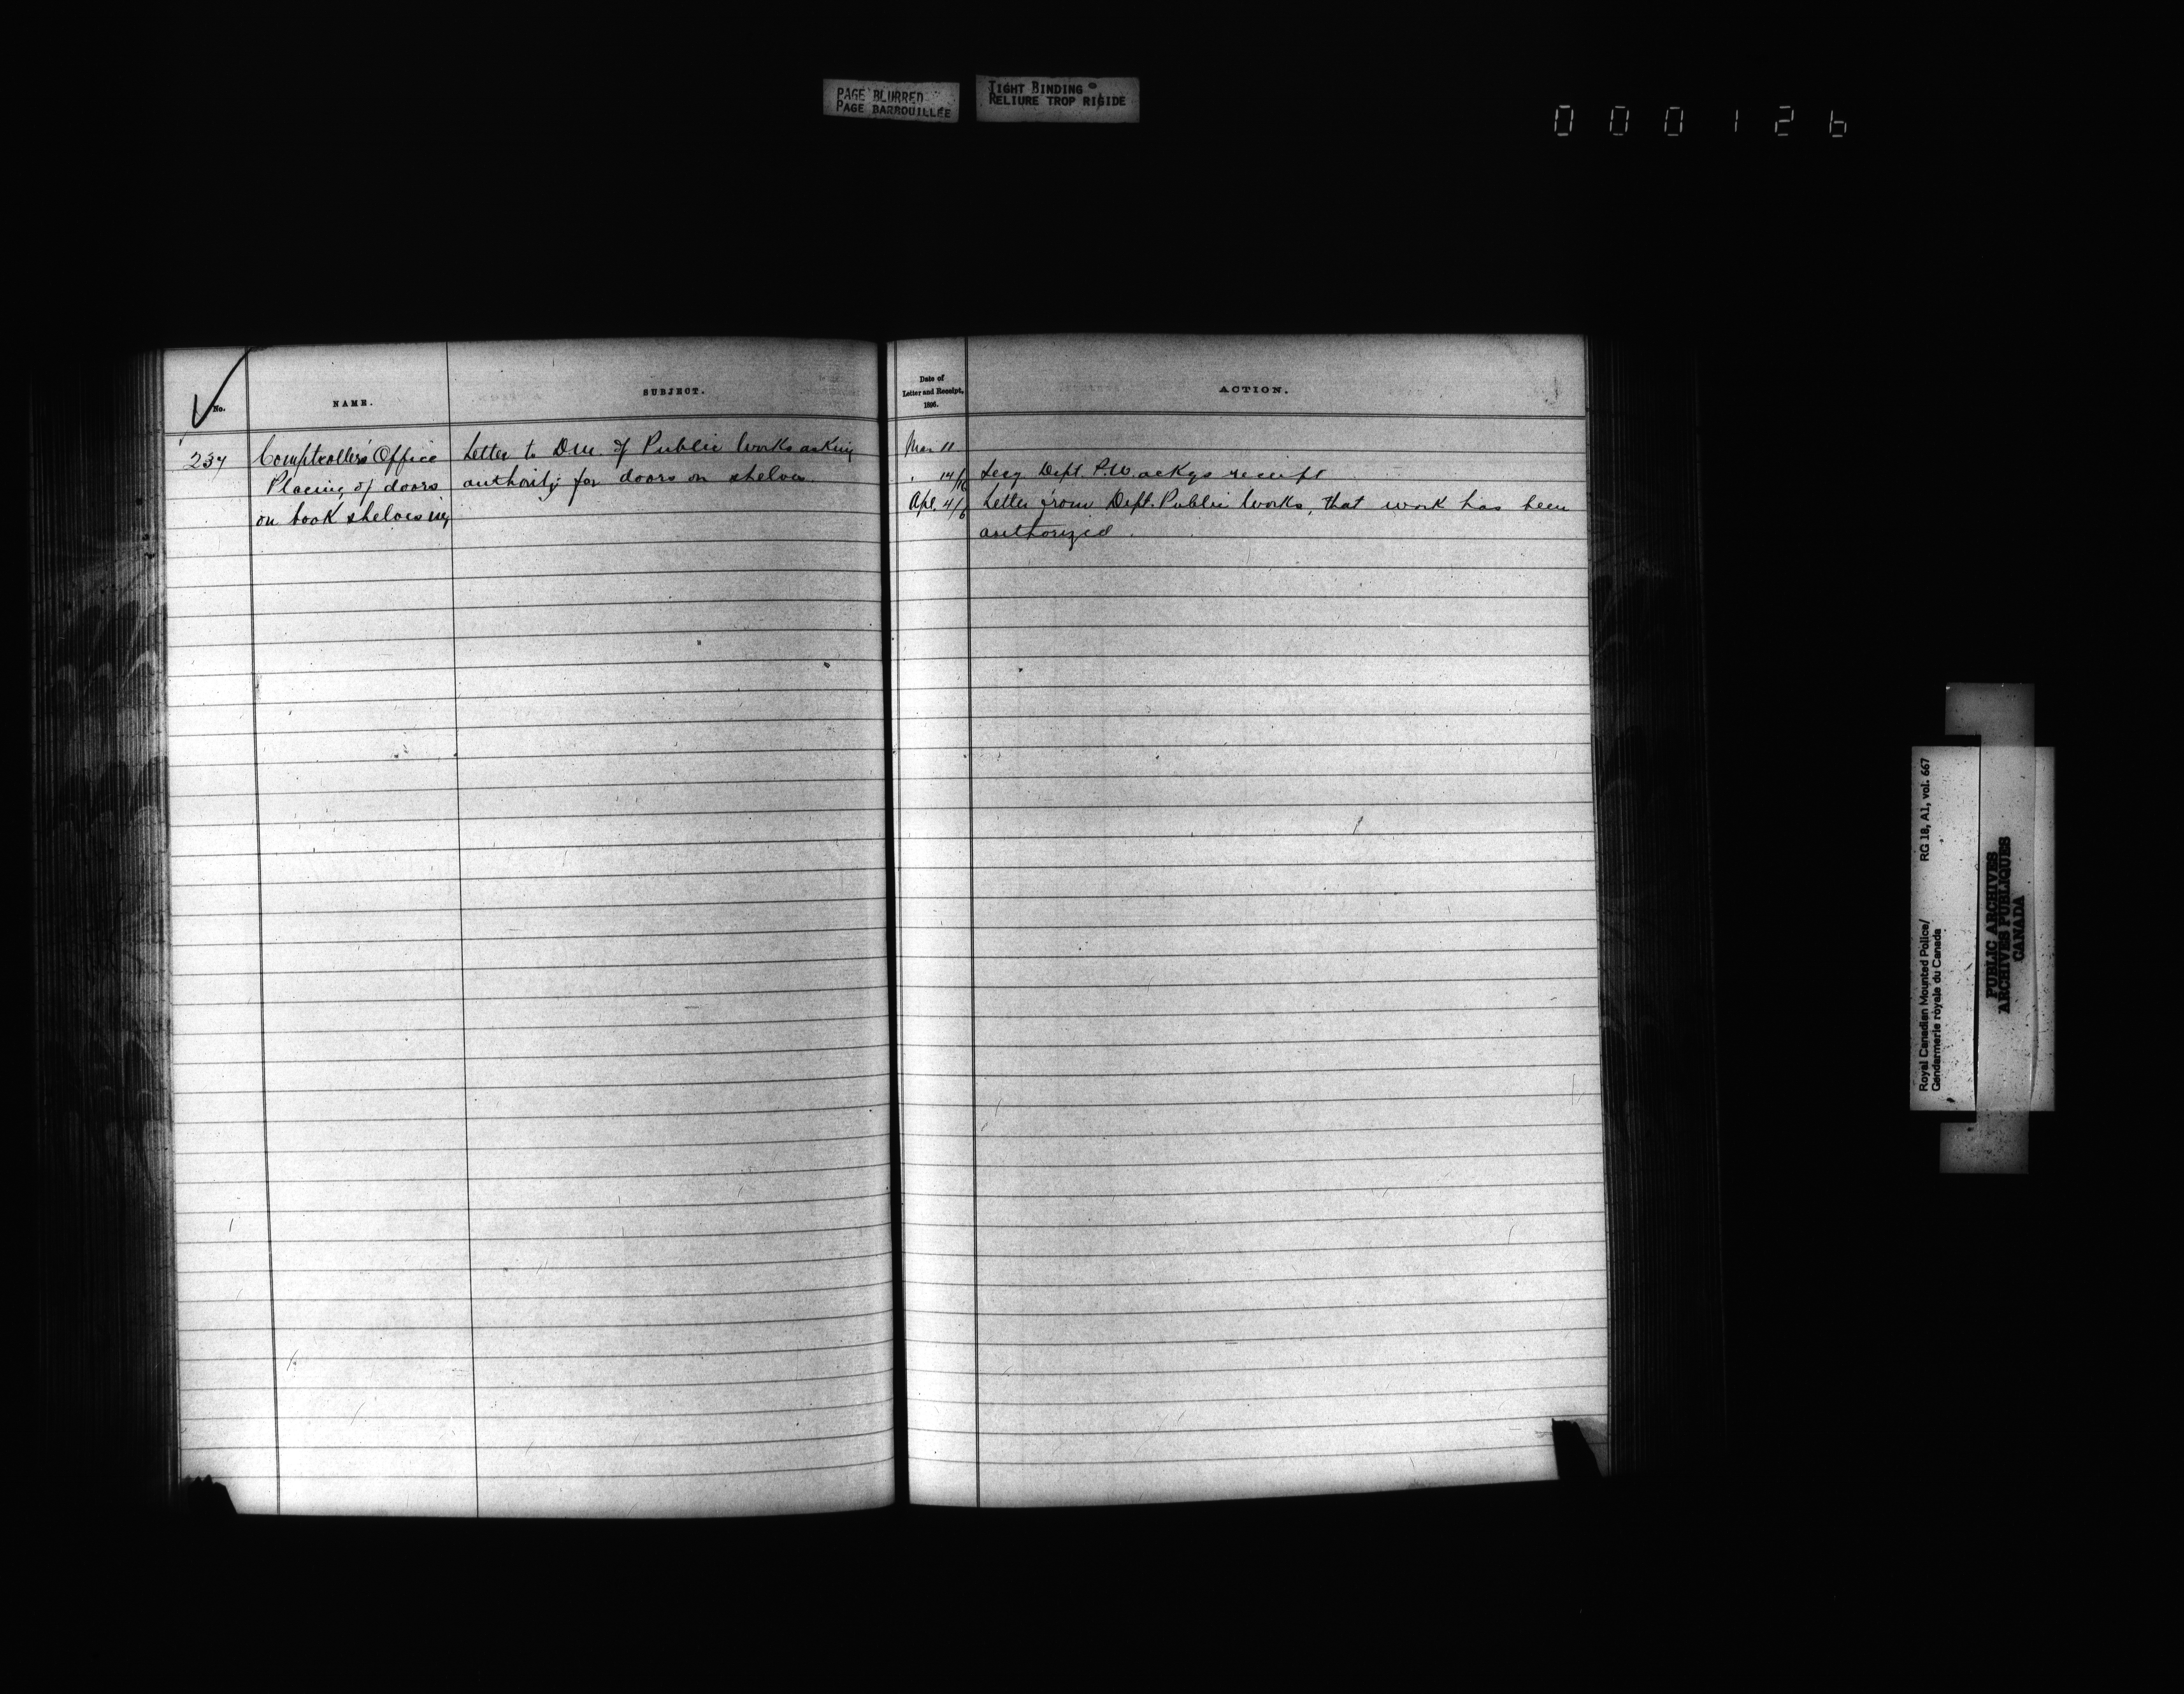 PAGE BLURRED
PAGE BARBOUILLÉE
TIGHT BINDING
RELIURE TROP RIGIDE
0 0 0 1 2 6
No.
NAME.
SUBJECT.
237
Comptroller's Office
Placing of doors
on book shelves in
Letter to D.M. of Public Works asking
authority for doors on shelves.
Date of
Letter and Receipt,
1896.
ACTION.
Mar 11
" 14/16 Secy Dept. P.W. ackgs receipt
Apl. 4/6 Letter from Dept. Public Works, that work has been
authorized.
Royal Canadian Mounted Police/ RG 18, A1, vol. 667
Gendarmerie royale du Canada
PUBLIC ARCHIVES
ARCHIVES PUBLIQUES
CANADA